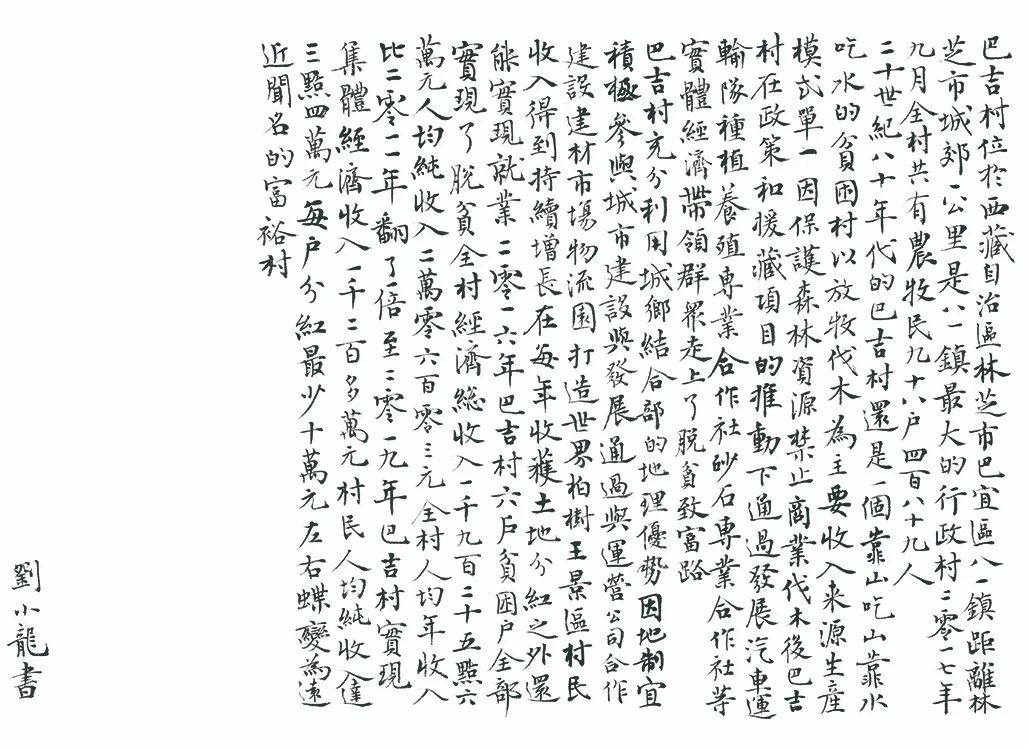 巴吉村位於西藏自治區林芝市巴宜區八一鎮距離林
芝市城郊一公里是八一鎮最大的行政村二零一七年
九月全村共有農牧民九十八户四百八十九人
二十世紀八十年代的巴吉村還是一個靠山吃山靠水
吃水的貧困村以放牧伐木為主要收入来源生産
模式單一因保護森林資源禁止商業伐木後巴吉
村在政策和暖藏項目的推動下通過發展汽車運
輸隊種植養殖専業合作社砂石専業合作社等
實體經濟帶領群衆走上了脱貧致富路
巴吉村充分利用城鄉結合部的地理優勢因地制宜
積極參與城市建設與發展通過與運營公司合作
建設建材市場物流園打造世界柏樹王景區村民
收入得到持續增長在每年收穫土地分紅之外還
能實現就業二零一六年巴吉村六户貧困户全部
實現了脱貧全村經濟總收入一千九百二十五點六
萬元人均純收入二萬零六百零三元全村人均年收入
比二零一一年翻了一倍至二零一九年巴吉村實現
集體經濟收入一千二百多萬元村民人均純收入達
三點四萬元每户分紅最少十萬元左右蝶變為遠
近聞名的富裕村
劉小龍書